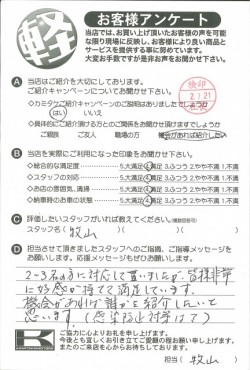 軽
お客様アンケート
当店では、お買い上げ頂いたお客様の声を可能
な限り現場に反映し、お客様により良い商品と
サービスを提供する事に努めています。
大変お手数ですが是非お声をお聞かせ下さい。
A 当店はご紹介を大切にしております。
ご紹介キャンペーンについてお聞かせ下さい。
◇カミタケご紹介キャンペーンのご説明はありましたでしょうか
はい いいえ
検印 2./21
◇具体的にご紹介頂ける方とのご関係をお聞かせ頂けますでしょうか
ご親戚 ご友人 職場の方 機会があれば紹介したい
B 当店を実際にご利用になった印象をお聞かせ下さい。
◇総合的な満足度 5.大満足 4.満足 3.ふつう 2.やや不満 1.不満
◇スタッフの対応 5.大満足 4.満足 3.ふつう 2.やや不満 1.不満
◇お店の雰囲気、清掃 5.大満足 4.満足 3.ふつう 2.やや不満 1.不満
◇納車時のお車の状態 5.大満足 4.満足 3.ふつう 2.やや不満 1.不満
C 評価したいスタッフがいれば教えてください。
スタッフ名( 牧山 )( )
D 担当させて頂きましたスタッフへのご指摘、ご指導メッセージを
お願いします。応援メッセージもぜひお願いします。
2~3名の方に対応して貰いましたが、皆様非常
に好感が持てて満足しています。
機会があれば誰かを紹介したいと
思います。(感染防止対策は?)
ご協力に心よりお礼を申し上げます。
今後とも宜しくお引き立てご愛顧の程お願い申し上げます。
またのご来店を心からお待ちしております。
担当( 牧山 )